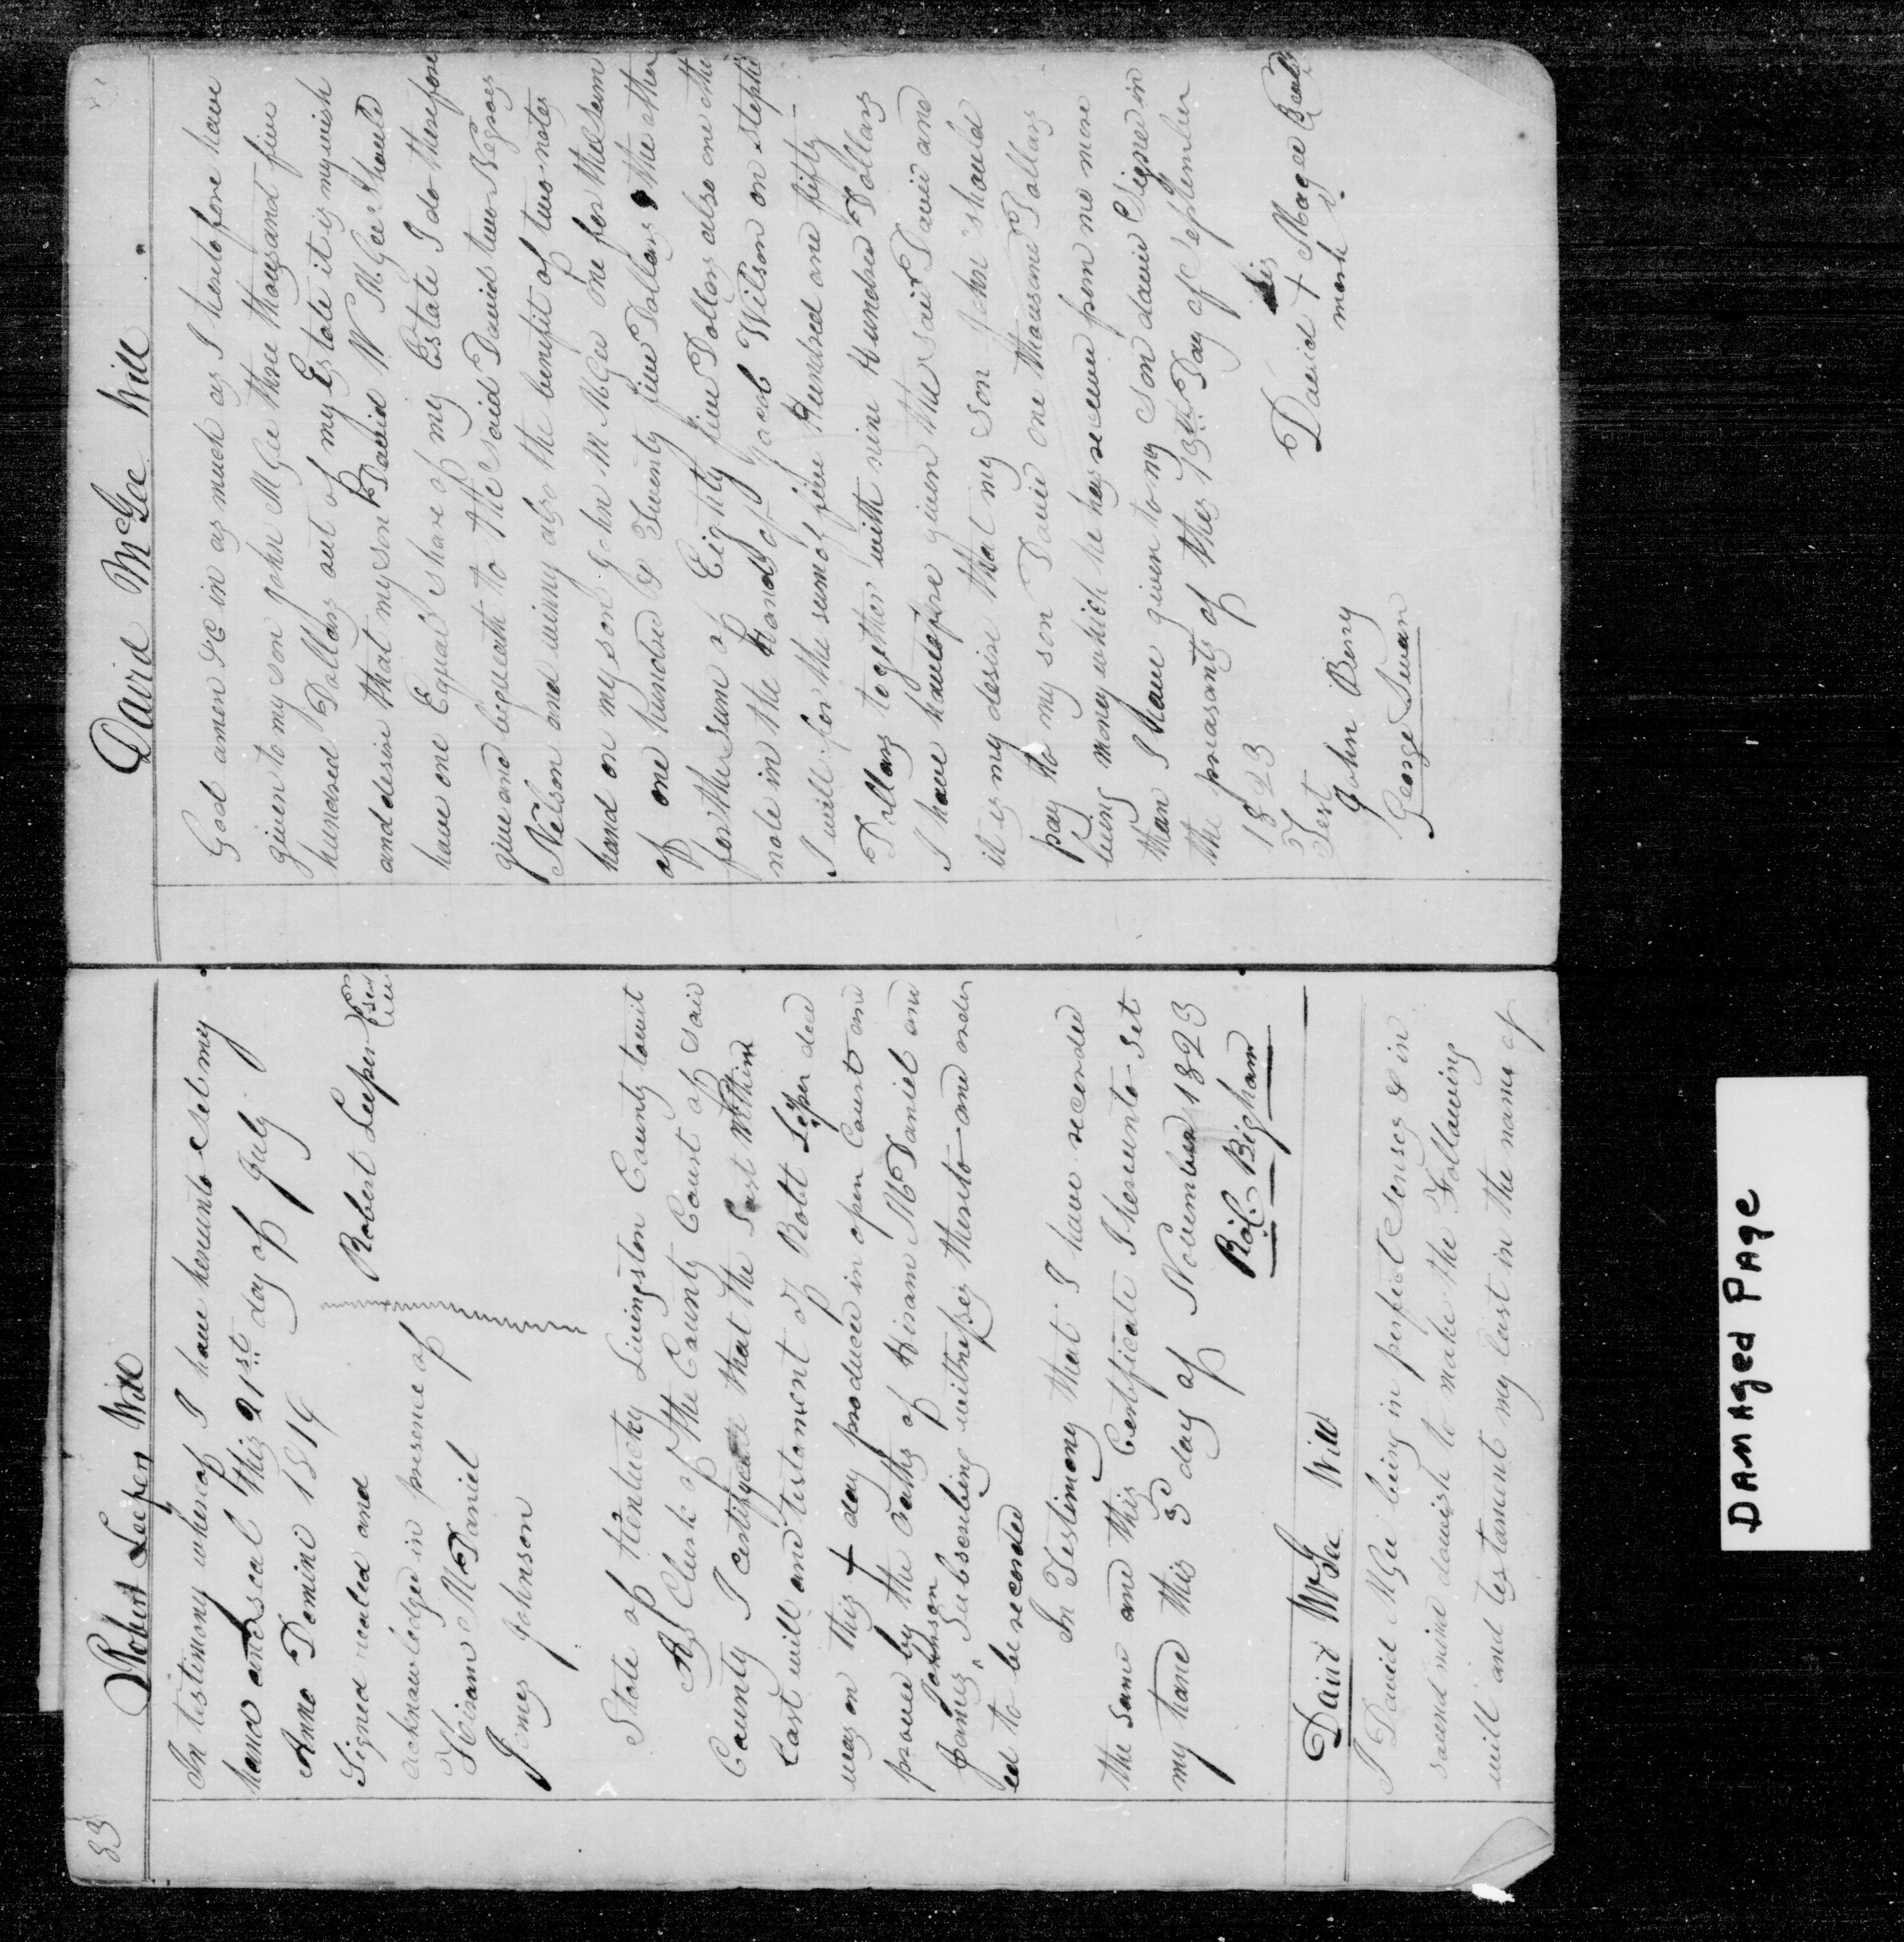 33
Robert Leeper Will
In testimony whereof I have hereunto Set my
hand and seal this 21st day of July
Anno Domini 1819
Signed sealed and
acknowledged in presence of
Robert Leeper Seal
Hiram McDaniel
James Johnson
State of Kentucky Livingston County towit
As Clerk of the County Court of said
County I certify that the Last Within
Last will and testament of Robt Leeper decd
was on this day produced in open Court and
proved by the oaths of Hiram McDaniel and
James Johnson Subscribing witnesses thereto and order
ed to be recorded
In Testimony that I have recorded
the same and this Certificate I hereunto Set
my hand this 3d day of November 1823
David McGee Will
I David McGee being in perfect Senses & in
sound mind do wish to make the Following
will and testament my last in the name of
David McGee Will
God amen &c in as much as I heretofore have
given to my son john McGee three thousand five
hundred Dollars out of my Estate it is my wish
and desire that my son David W McGee Should
have one Equal share of my Estate I do therefore
give and bequeath to the said David two Negroes
Nelson and winny also the benefit of two notes
hand on my son John M McGee one for the sum
of one hundred & Twenty five Dollars the other
for the sum of Eighty five Dollars also one other
note in the hands of Jacob Wilson on Stephe
I will for the sum of five Hundred and fifty
Dollars together with nine Hundred Dollars
I have heretofore given the said David and
it is my desire that my son John should
pay to my son David one thousand Dollars
being money which he has receive from me more
than I have given to my Son david Signed in
the preasants of this 13th Day of September
1823
Test
John Berry
George Swan
his
David + Magee Seal
mark
DAMAGED PAGE